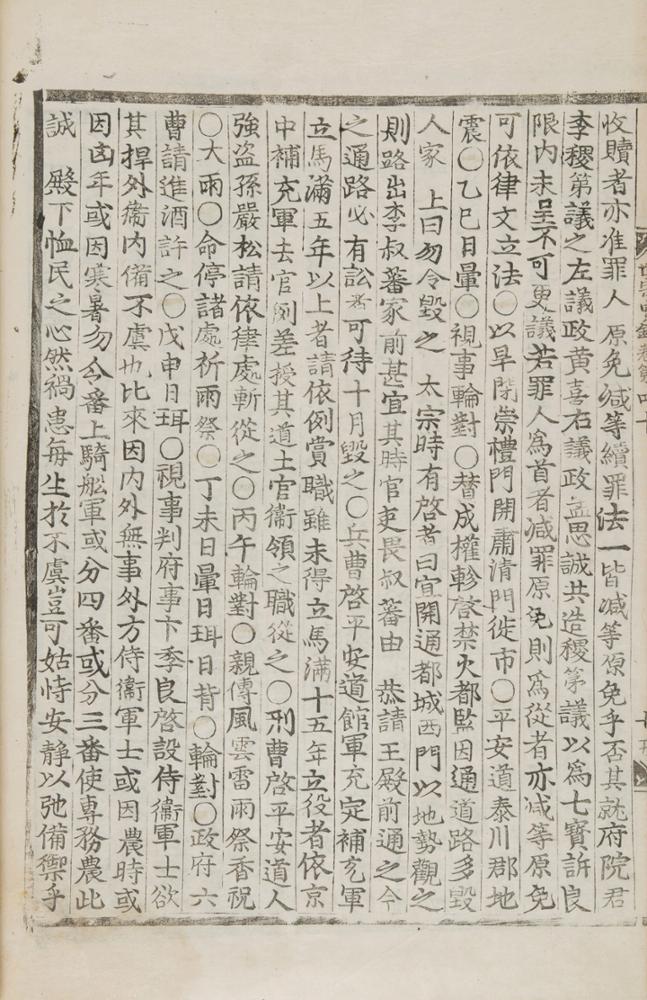 收贖者亦准罪人 原免減等續罪法一皆減等原免乎否其就府院君
李稷第議之左議政黃喜右議政孟思誠共造稷第議以爲七寶訴良
限內未呈不可更議若罪人爲首者減罪原免則爲從者亦減等原免
可依律文立法○以旱閉崇禮門開肅清門徙市○平安道泰川郡地
震○乙巳日暈○視事輪對○替成權軫啓禁火都監因通道路多毀
人家 上曰勿令毀之 太宗時有啓者曰宜開通都城西門以地勢觀之
則路出李叔蕃家前甚宜其時官吏畏叔蕃由 恭請王殿前通之今
之通路必有訟者可待十月毀之○兵曹啓平安道館軍充定補充軍
立馬滿五年以上者請依例賞職雖未得立馬滿十五年立役者依京
中補充軍去官例差授其道土官衞領之職從之○刑曹啓平安道人
強盜孫嚴松請依律處斬從之○丙午輪對○親傳風雲雷雨祭香祝
○大雨○命停諸處祈雨祭○丁未日暈日珥日背○輪對○政府六
曹請進酒許之○戊申日珥○視事判府事卞季良啓設侍衞軍士欲
其捍外衞內備不虞也比來因內外無事外方侍衞軍士或因農時或
因凶年或因寒暑勿令番上騎船軍或分四番或分三番使專務農此
誠 殿下恤民之心然禍患每生於不虞豈可姑恃安靜以弛備禦乎